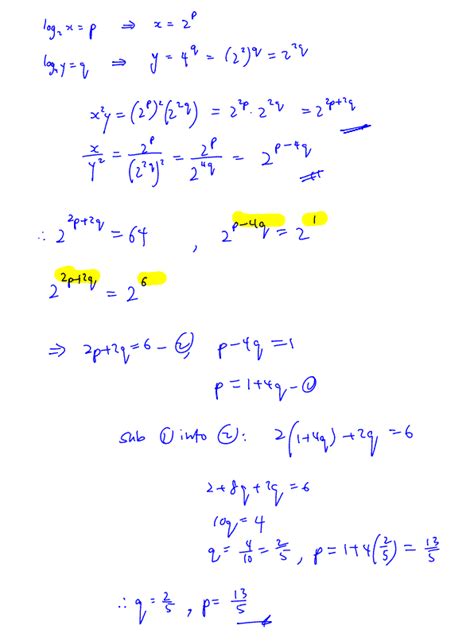 log₂x = p ⇒ x = 2^p
log₄y = q ⇒ y = 4^q = (2²)^q = 2^{2q}
x²y = (2^p)²(2^{2q}) = 2^{2p} · 2^{2q} = 2^{2p+2q}
x/y² = 2^p/(2^{2q})² = 2^p/2^{4q} = 2^{p-4q}
∴ 2^{2p+2q} = 64 , 2^{p-4q} = 2^1
2^{2p+2q} = 2^6
⇒ 2p+2q=6 – ②, p-4q=1
p=1+4q – ①
sub ① into ②: 2(1+4q)+2q=6
2+8q+2q=6
10q=4
q=4/10=2/5, p=1+4(2/5)=13/5
∴ q=2/5, p=13/5